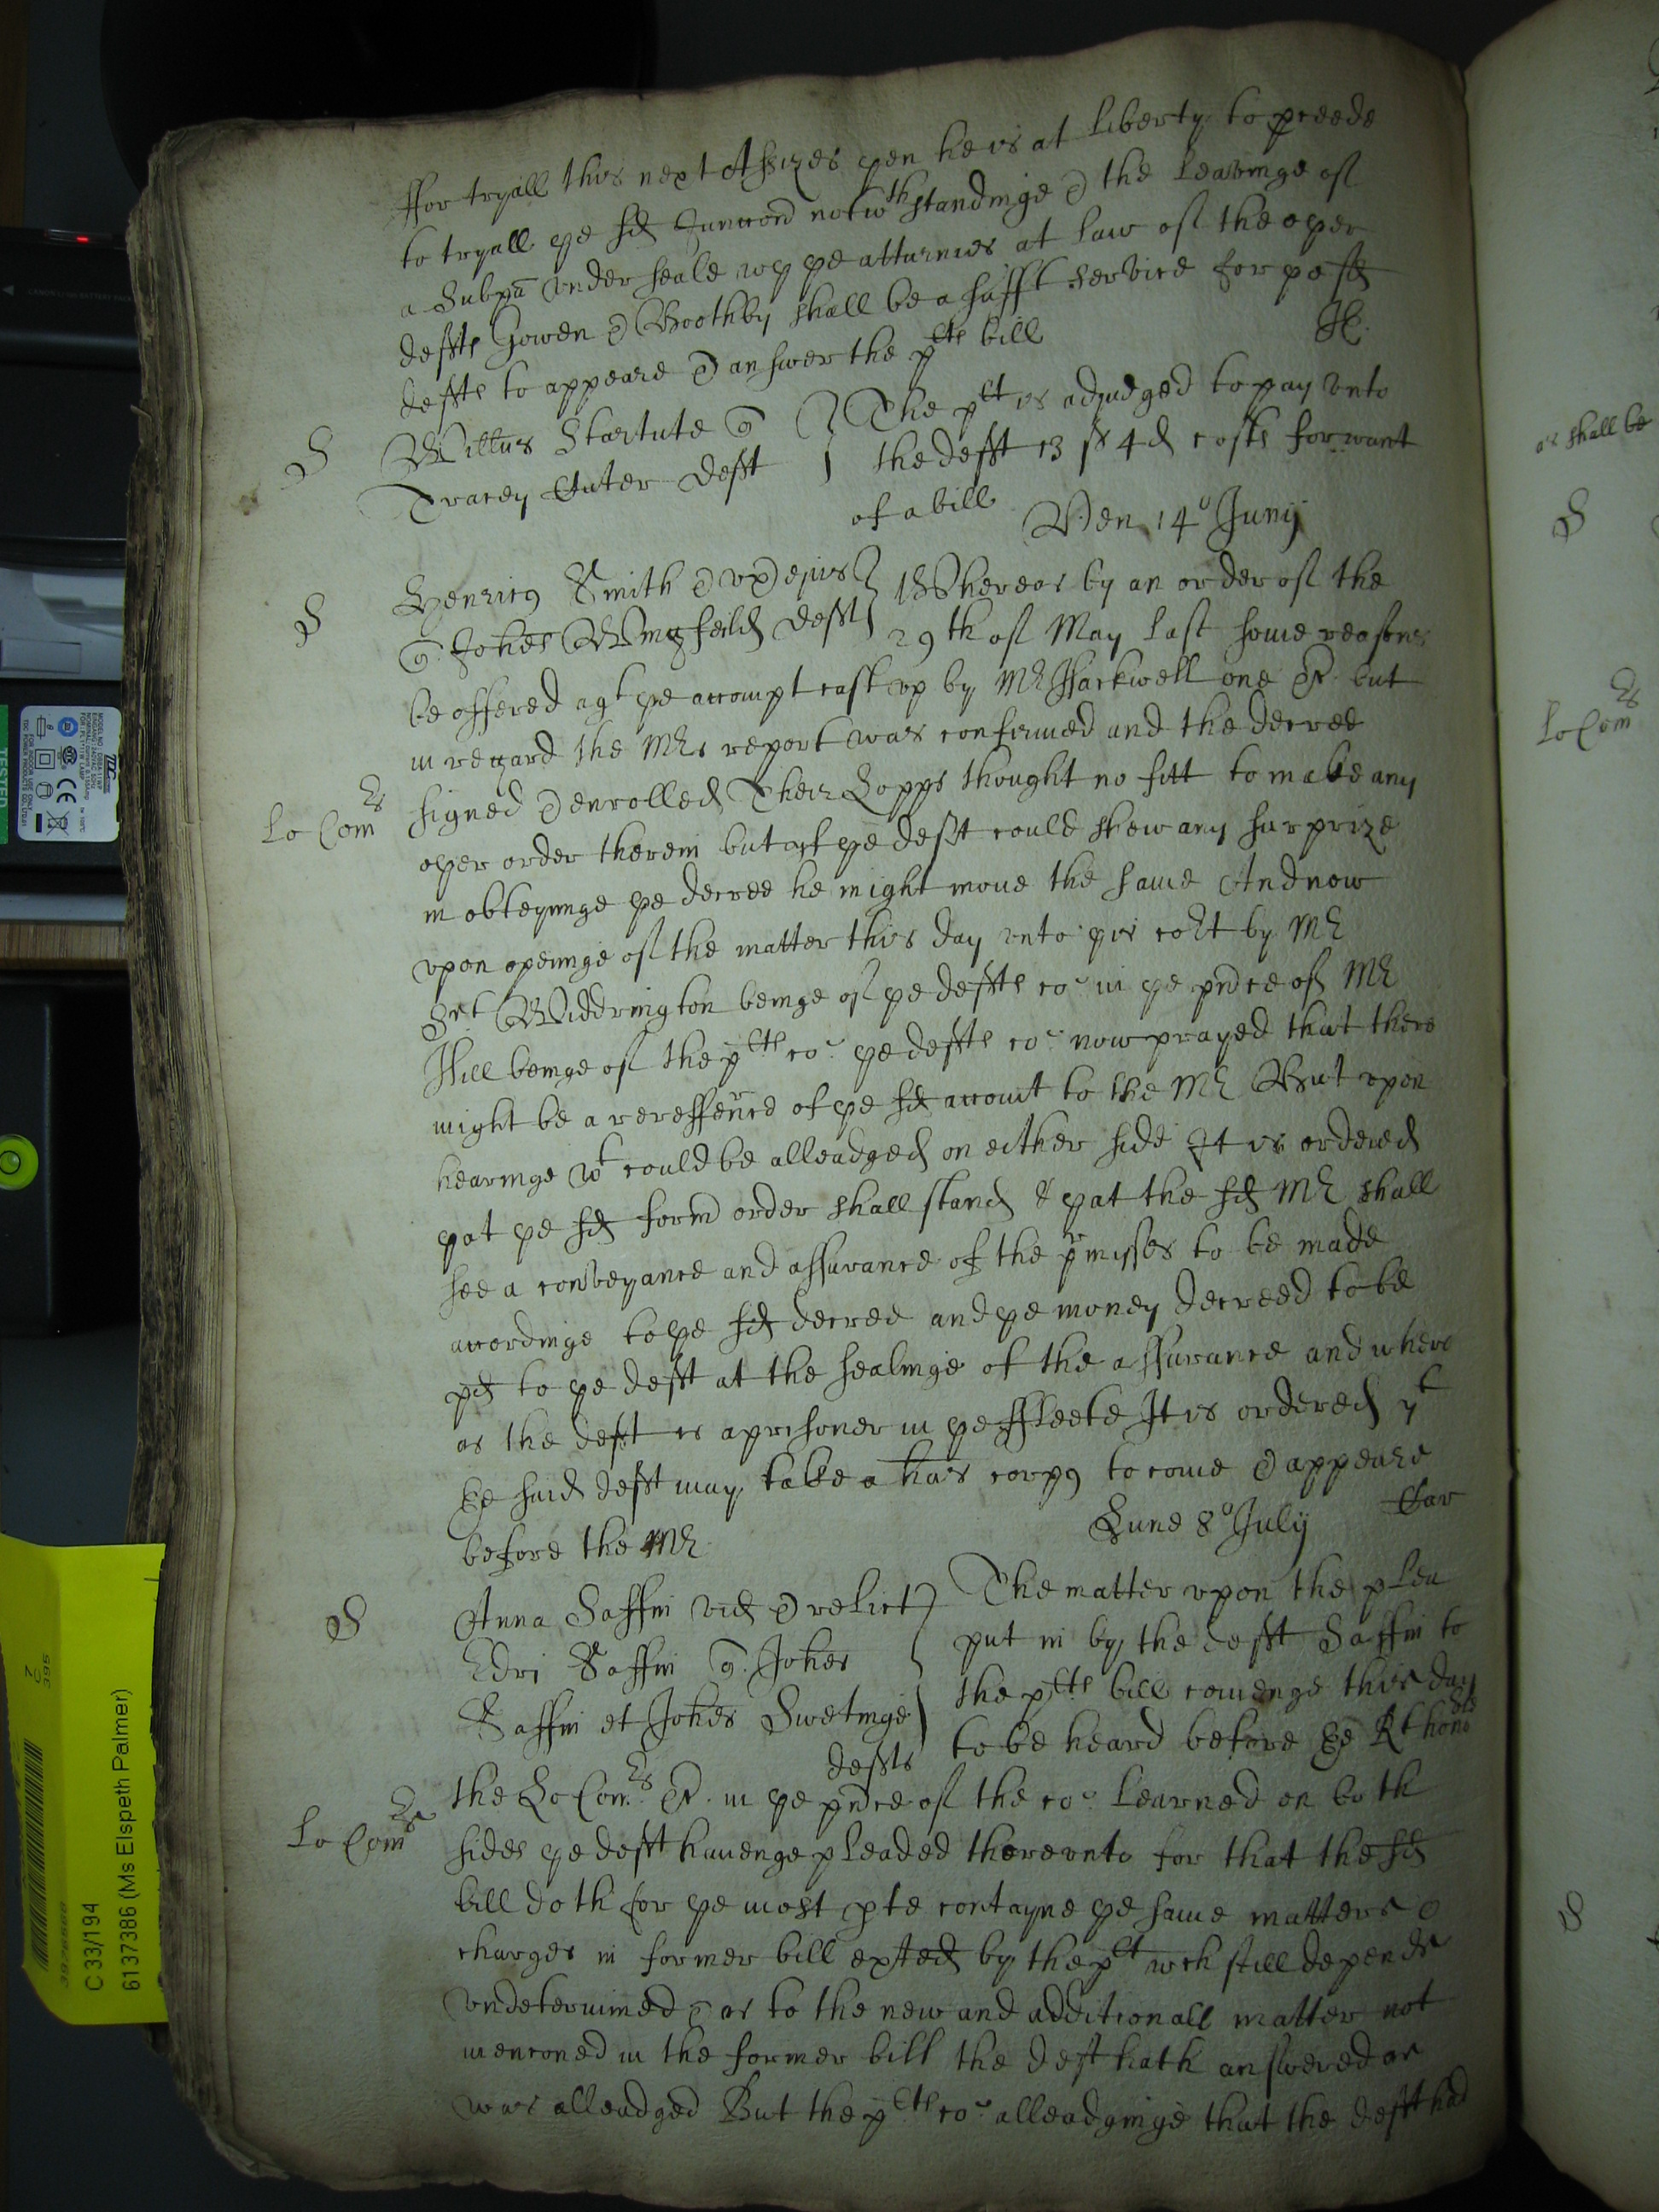 ffor tryall this next Assizes yen he is at liberty to pceede
to tryall ye sd Iunccon notwthstandinge & the leavinge of
a Subpa vnder seale wy ye atturnies at law of the oyer
defftes Gowen & Boothby shall be a sufft service for ye sd
defftes to appeare & answer the pltes bill
H.
S
Willus Startute q
Tracey Cuter Defft
The plt is adjudged to pay vnto
the defft 13 s 4d costs for want
of a bill
Ven 14o Junij
S
Henricus Smith & vx eius
q Johes Wingfeild defft
Whereas by an order of the
29th of May last some reasons
be offered agt ye accompt cast vp by Mr Hackwell one &c but
in regard the Mrs report was confirmed and the decree
Lo Comrs
signed & enrolled Their Lopps thought no fitt to make any
oyer order therein but yf ye defft could shew any surprize
in obteyninge ye decree he might moue the same And now
vpon openinge of the matter this day vnto yis cort by Mr
Srt Widdrington beinge of ye defftes co: in ye pnce of Mr
Hill beinge of the pltes co: ye defftes co: now prayed that there
might be a rereffernce of ye sd accomt to the Mr But vpon
hearinge wt could be alleadged on either side It is ordered
yat ye sd form order shall stand & yat the sd Mr shall
see a conveyance and assurance of the prmisses to be made
accordinge to ye sd decree and ye money decreed to be
pd to ye defft at the sealinge of the assurance and where
as the defft is a prisoner in ye ffleete It is ordered yt
ye said defft may take a has corpus to come & appeare
before the Mr
Lune 8o July
Car
S
Anna Saffin vid & relict
Edri Saffin q. Johes
Saffin et Johes Swetinge
deffts
The matter vpon the plea
put in by the defft Saffin to
the pltes bill cominge this day
to be heard before ye Rt honoble
Lo Comrs
the Lo Comrs &c. in ye pnce of the co: learned on both
sides ye defft havenge pleaded therevnto for that the sd
bill doth for ye most pte contayne ye same matters &
charges in former bill exted by the plt wch still depends
vndetermined & as to the new and additionall matter not
menconed in the former bill the deft hath answered as
was alleadged But the pltes co: alleadginge that the defft had
as shall be
S
Lo Comrs
S
C 33/194
6137386 (Ms Elspeth Palmer)
TESTED